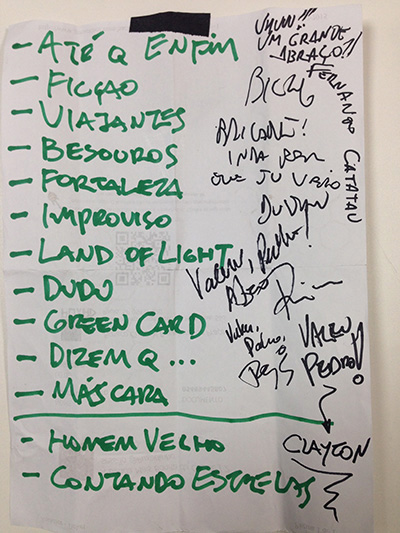 - ATÉ Q ENFIM
- FICÇÃO
- VIAJANTES
- BESOUROS
- FORTALEZA
- IMPROVISO
- LAND OF LIGHT
- DUDU
- GREEN CARD
- DIZEM Q ...
- MÁSCARA
- HOMEM VELHO
- CONTANDO ESTRELAS
UM GRANDE
ABRAÇO!!
FERNANDO
CATATAU
INDA BEM
QUE TU VEIO
Valeu,
Valeu,
VALEU
PEDRO!
CLAYTON